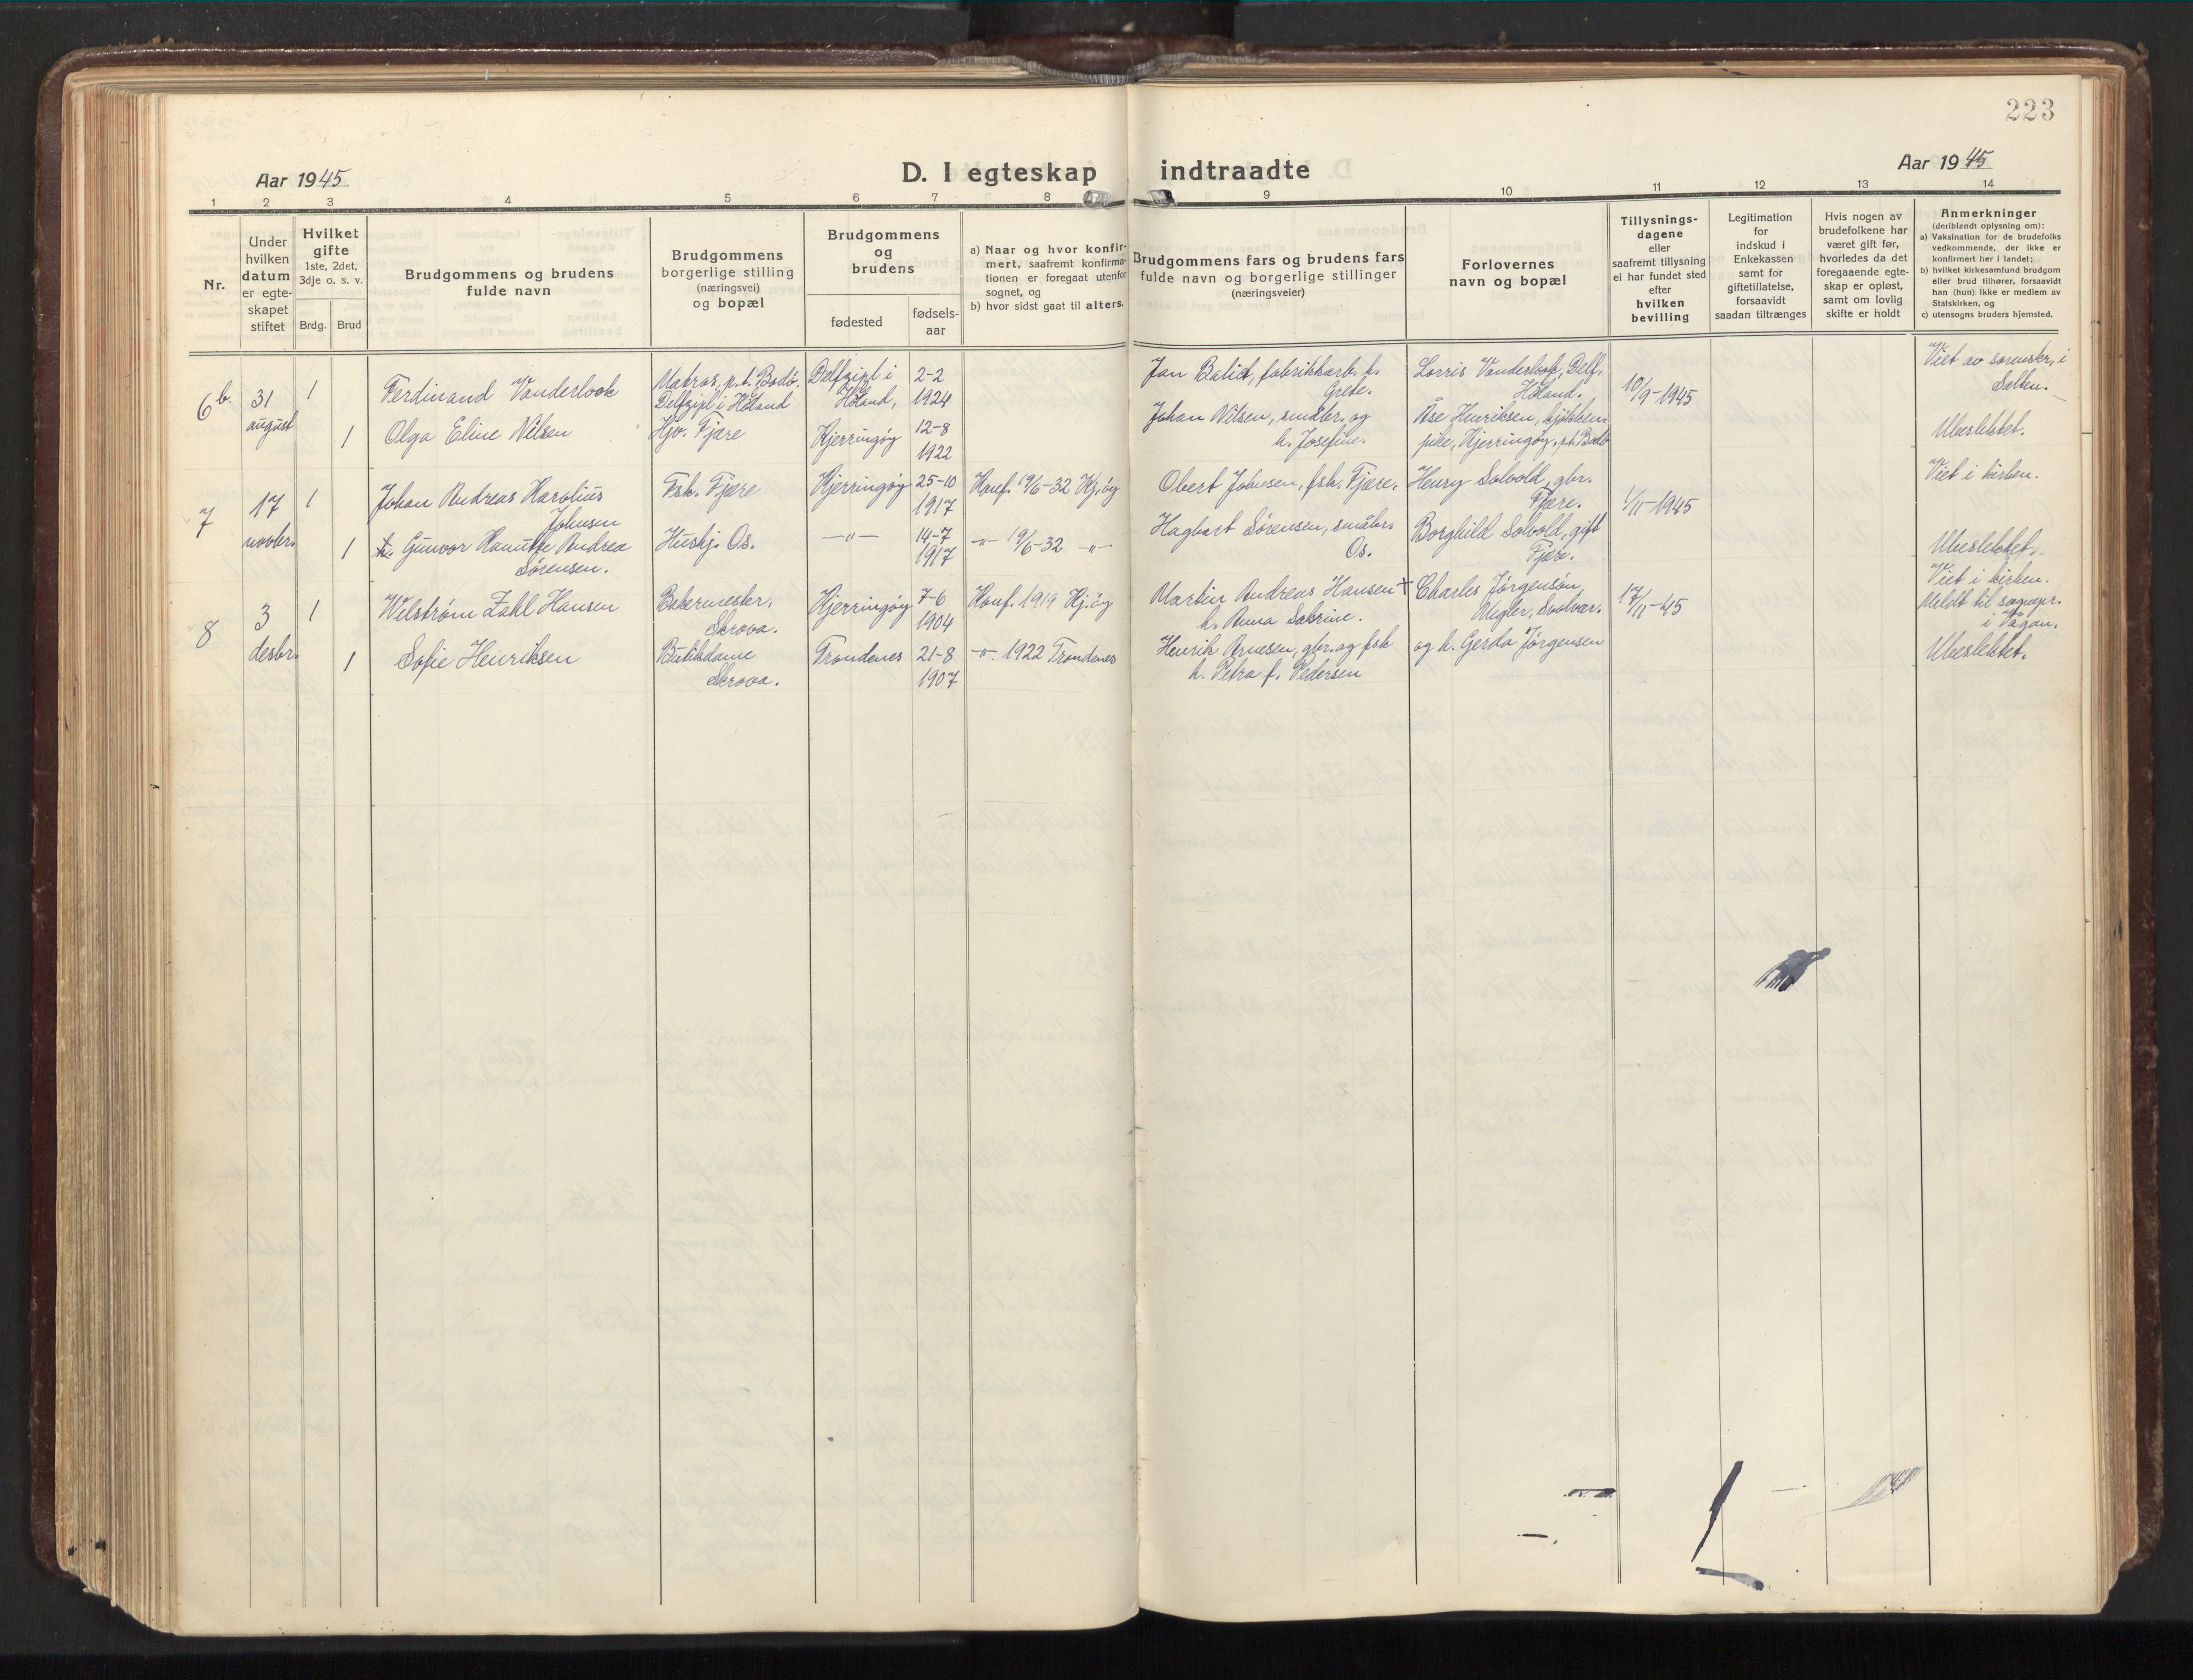 223
Aar 1945
D. I egteskap indtraadte
Aar 1945
1 2 3 4 5 6 7 8 9 10 11 12 13 14
Nr.
Under hvilken datum er egteskapet stiftet
Hvilket gifte 1ste, 2det, 3dje o. s. v.
Brdg. Brud
Brudgommens og brudens fulde navn
Brudgommens borgerlige stilling (næringsvei) og bopæl
Brudgommens og brudens
fødested
fødsels-aar
a) Naar og hvor konfirmert, saafremt konfirmationen er foregaat utenfor sognet, og
b) hvor sidst gaat til alters.
Brudgommens fars og brudens fars fulde navn og borgerlige stillinger (næringsveier)
Forlovernes navn og bopæl
Tillysningsdagene eller saafremt tillysning ei har fundet sted efter hvilken bevilling
Legitimation for indskud i Enkekassen samt for giftetillatelse, forsaavidt saadan tiltrænges
Hvis nogen av brudefolkene har været gift før, hvorledes da det foregaaende egteskap er opløst, samt om lovlig skifte er holdt
Anmerkninger (deriblandt oplysning om):
a) Vaksination for de brudefolks vedkommende, der ikke er konfirmert her i landet;
b) hvilket kirkesamfund brudgom eller brud tilhører, forsaavidt han (hun) ikke er medlem av Statskirken, og
c) utensogns bruders hjemsted.
6 b. 31 august
1 Ferdinand Vanderlook
Matros, p.t. Bodö.
Delfzijl i Holand
Delfzijl i Holand,
2-2 1924
Jan Balid, fabrikkarb. h. Grete.
Lorris Vanderlook, Delf. Holand.
10/9-1945
Viet av sorenskr. i Salten.
1 Olga Eline Nilsen
Hjv. Fjære
Kjerringøy
12-8 1922
Johan Nilsen, småbr. og h. Josefine.
Åse Henriksen, kjøkkenpike, Kjerringøy, p.t. Bodö
Ubeslektet.
7 17 novbr.
1 Johan Andreas Harolius Johnsen
Fsk. Fjære
Kjerringøy
25-10 1917
Konf. 19/6-32 Kj.øy
Obert Johnsen, fsk. Fjære.
Henry Solvold, gbr. Fjære.
1/11-1945
Viet i kirken.
1 Gunvor Hanutte Andrea Sørensen.
Huskj. Os.
-"-
14-7 1917
-"- 19/6-32 -"-
Hagbart Sørensen, småbr. Os.
Borghild Solvold, gift Fjære.
Ubeslektet.
8 3 desbr.
1 Wilstrøm Zahl Hansen
Bakermester, Skrova.
Kjerringøy
7-6 1904
Konf. 1919 Kj.øy
Martin Andreas Hansen + h. Anna Sabrine.
Charles Jørgensön Megler, Svolvær.
17/11-45
Viet i kirken.
Meldt til sognepr. i Vågan.
1 Sofie Henriksen
Butikdame Skrova.
Trondenes
21-8 1907
-"- 1922 Trondenes
Henrik Arnesen, gbr. og fsk h. Petra f. Pedersen
og h. Gerda Jørgensen
Ubeslektet.